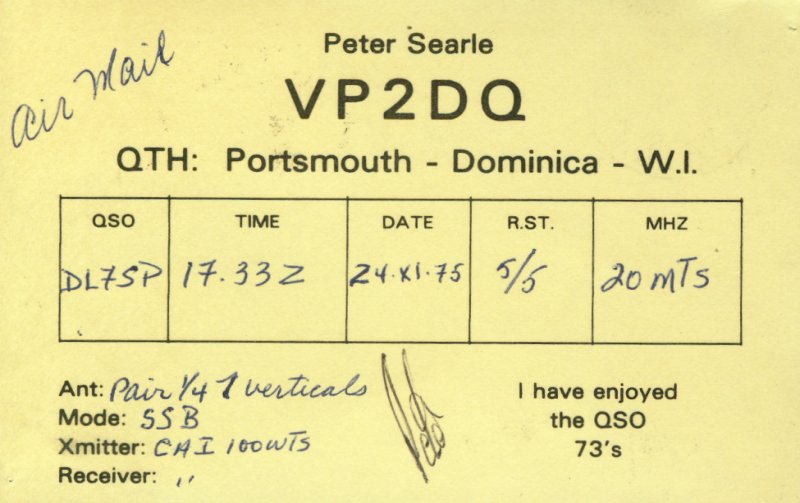 Air Mail
Peter Searle
VP2DQ
QTH: Portsmouth - Dominica - W.I.
QSO TIME DATE R.ST. MHZ
DL7SP 17.33Z 24.XI.75 5/5 20 MTS
Ant: Pair 1/4 λ verticals
Mode: SSB
Xmitter: CAI 100WTS
Receiver: "
I have enjoyed
the QSO
73's